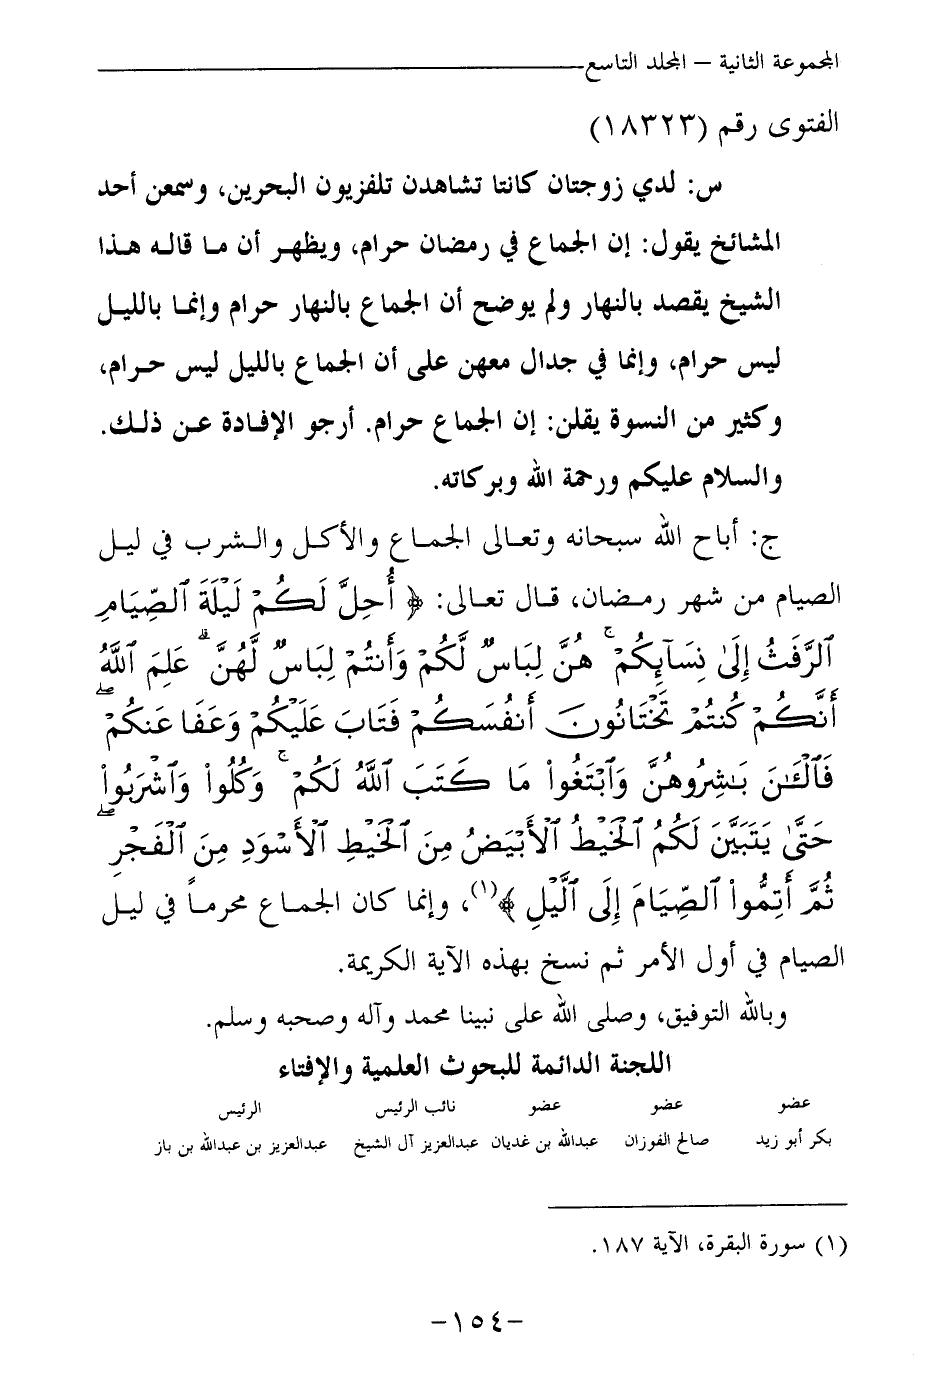 المجموعة الثانية – المجلد التاسع
الفتوى رقم (١٨٣٢٣)
س: لدي زوجتان كانتا تشاهدن تلفزيون البحرين، وسمعن أحد
المشائخ يقول: إن الجماع في رمضان حرام، ويظهر أن ما قاله هذا
الشيخ يقصد بالنهار ولم يوضح أن الجماع بالنهار حرام وإنما بالليل
ليس حرام، وإنما في جدال معهن على أن الجماع بالليل ليس حرام،
وكثير من النسوة يقلن: إن الجماع حرام. أرجو الإفادة عن ذلك.
والسلام عليكم ورحمة الله وبركاته.
ج: أباح الله سبحانه وتعالى الجماع والأكل والشرب في ليل
الصيام من شهر رمضان، قال تعالى: ﴿ أُحِلَّ لَكُمْ لَيْلَةَ ٱلصِّيَامِ
ٱلرَّفَثُ إِلَىٰ نِسَآئِكُمْ ۚ هُنَّ لِبَاسٌ لَّكُمْ وَأَنتُمْ لِبَاسٌ لَّهُنَّ ۗ عَلِمَ ٱللَّهُ
أَنَّكُمْ كُنتُمْ تَخْتَانُونَ أَنفُسَكُمْ فَتَابَ عَلَيْكُمْ وَعَفَا عَنكُمْ ۖ
فَٱلْـَٰٔنَ بَـٰشِرُوهُنَّ وَٱبْتَغُوا۟ مَا كَتَبَ ٱللَّهُ لَكُمْ ۚ وَكُلُوا۟ وَٱشْرَبُوا۟
حَتَّىٰ يَتَبَيَّنَ لَكُمُ ٱلْخَيْطُ ٱلْأَبْيَضُ مِنَ ٱلْخَيْطِ ٱلْأَسْوَدِ مِنَ ٱلْفَجْرِ ۖ
ثُمَّ أَتِمُّوا۟ ٱلصِّيَامَ إِلَى ٱلَّيْلِ ﴾(١)، وإنما كان الجماع محرماً في ليل
الصيام في أول الأمر ثم نسخ بهذه الآية الكريمة.
وبالله التوفيق، وصلى الله على نبينا محمد وآله وصحبه وسلم.
اللجنة الدائمة للبحوث العلمية والإفتاء
عضو عضو عضو نائب الرئيس الرئيس
بكر أبو زيد صالح الفوزان عبدالله بن غديان عبدالعزيز آل الشيخ عبدالعزيز بن عبدالله بن باز
(١) سورة البقرة، الآية ١٨٧.
-١٥٤-